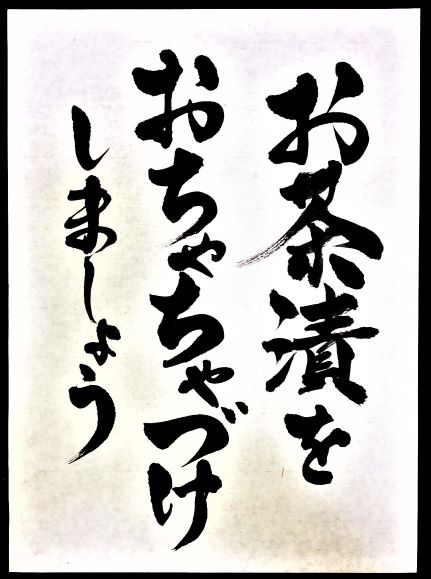 お茶漬を
おちゃちゃづけ
しましょう